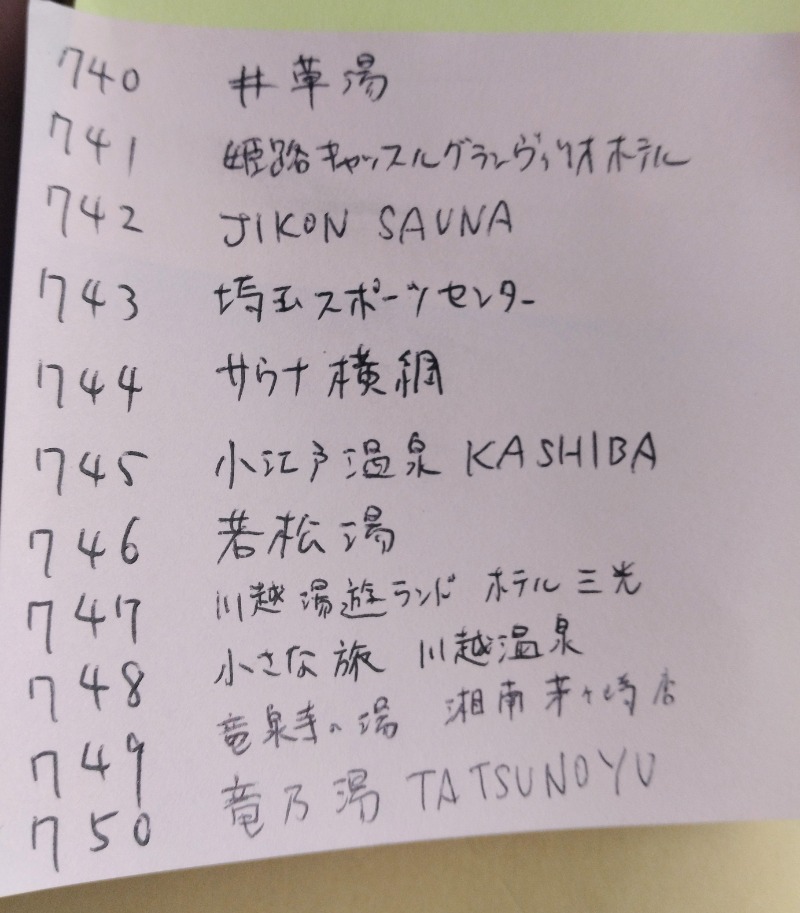 740 井草湯
741 姫路キャッスルグランヴィリオホテル
742 JIKON SAUNA
743 埼玉スポーツセンター
744 サウナ横綱
745 小江戸温泉 KASHIBA
746 若松湯
747 川越湯遊ランド ホテル三光
748 小さな旅 川越温泉
749 竜泉寺の湯 湘南茅ヶ崎店
750 竜乃湯 TATSUNOYU